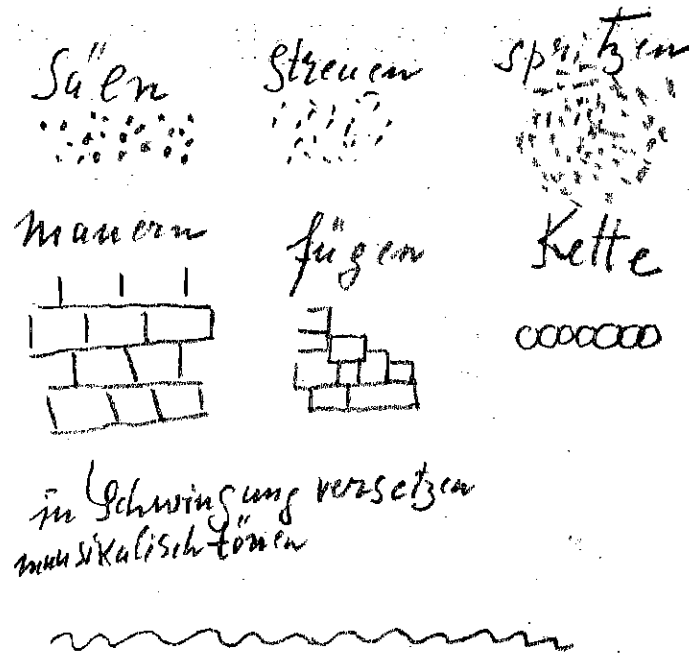 Säen streuen spritzen
mauern fügen Kette
in Schwingung versetzen
musikalisch tönen